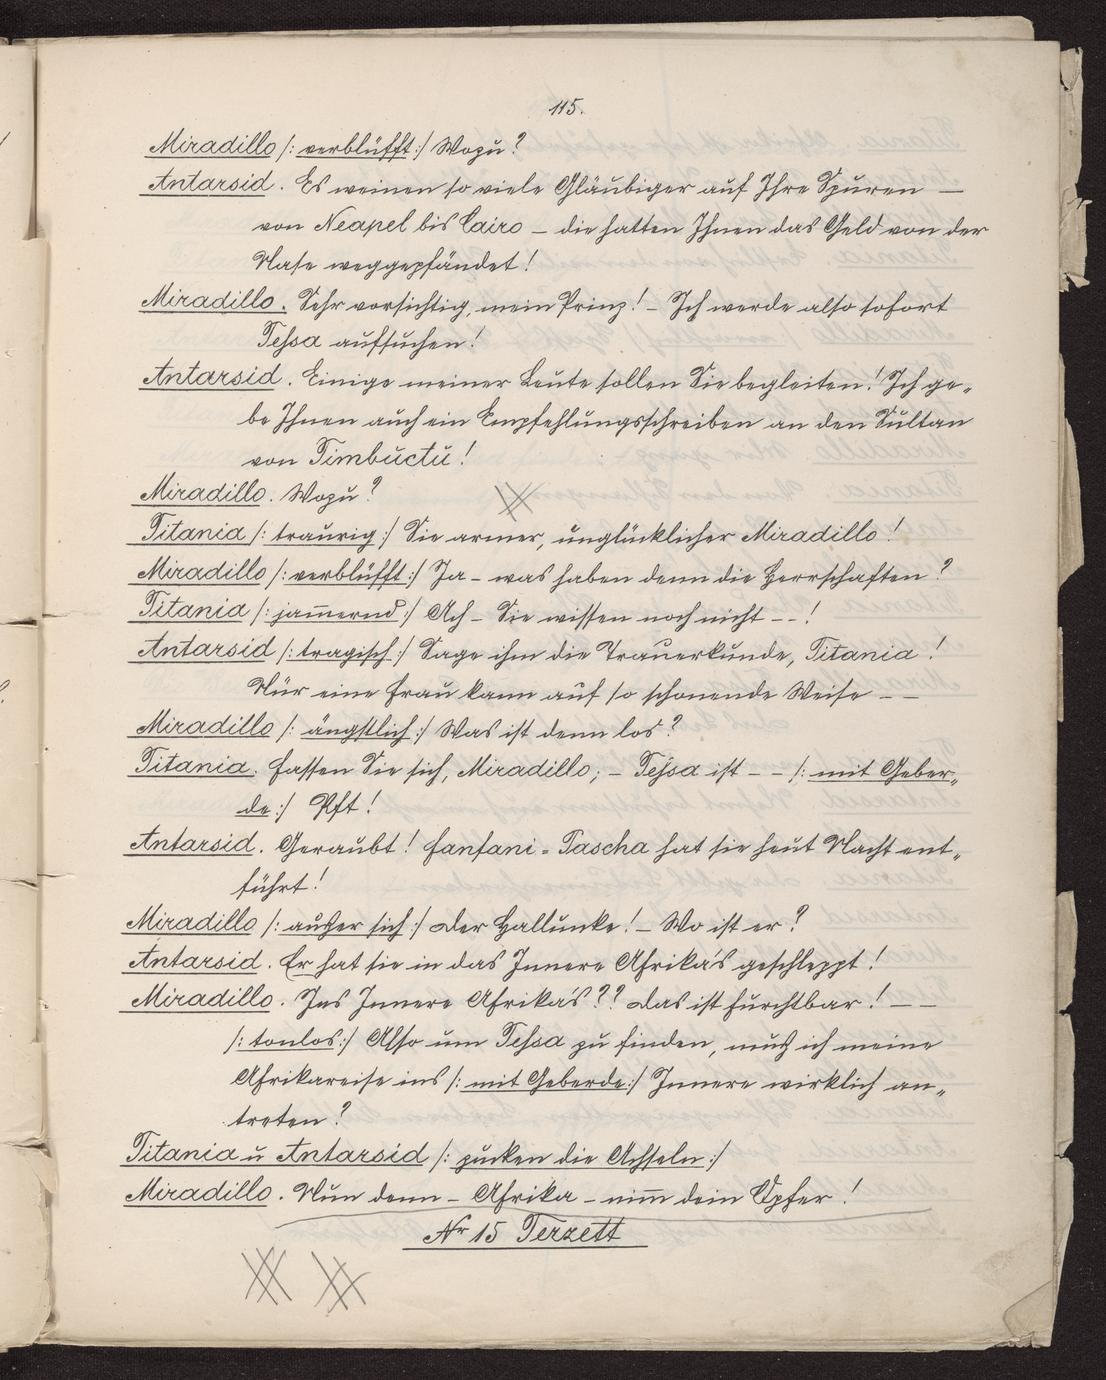 115.
Miradillo /: verblüfft :/ Wozu?
Antarsid. Es weinen so viele Gläubiger auf Ihre Spuren —
von Neapel bis Cairo – die hatten Ihnen das Geld von der
Nase weggepfändet!
Miradillo. Sehr vorsichtig, mein Prinz! – Ich werde also sofort
Tessa aufsuchen!
Antarsid. Einige meiner Leute sollen Sie begleiten! Ich ge-
be Ihnen auch ein Empfehlungsschreiben an den Sultan
von Timbuctu!
Miradillo. Wozu?
Titania /: traurig :/ Sie armer, unglücklicher Miradillo!
Miradillo /: verblüfft :/ Ja – was haben denn die Herrschaften?
Titania /: jam̄ernd :/ Ach – Sie wissen noch nicht – – !
Antarsid /: tragisch :/ Sage ihm die Trauerkunde, Titania!
Nur eine Frau kann auf so schonende Weise – –
Miradillo /: ängstlich :/ Was ist denn los?
Titania. Fassen Sie sich, Miradillo; – Tessa ist – – /: mit Geber-
de :/ Pft!
Antarsid. Geraubt! Fanfani-Pascha hat sie heut Nacht ent-
führt!
Miradillo /: außer sich :/ Der Hallunke! – Wo ist er?
Antarsid. Er hat sie in das Innere Afrika's geschleppt!
Miradillo. Ins Innere Afrika's?? Das ist furchtbar! – –
/: tonlos :/ Also um Tessa zu finden, muß ich meine
Afrikareise ins /: mit Geberde :/ Innere wirklich an-
treten?
Titania u Antarsid /: zucken die Achseln :/
Miradillo. Nun denn – Afrika – nim̄ dein Opfer!
Nr 15 Terzett